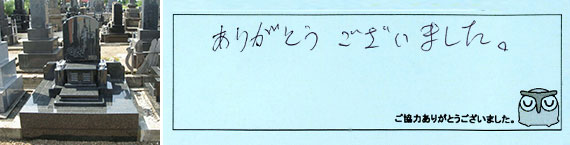 ありがとうございました。
ご協力ありがとうございました。